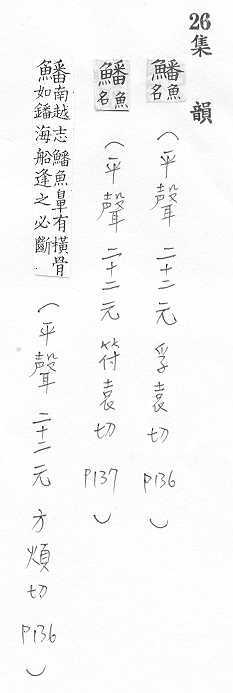 26集韻
鱕魚名（平聲 二十二元 孚袁切 P136）
鱕魚名（平聲 二十二元 符袁切 P137）
鱕南越志鱕魚鼻有橫骨如鐇海船逢之必斷（平聲 二十二元 方煩切 P136）